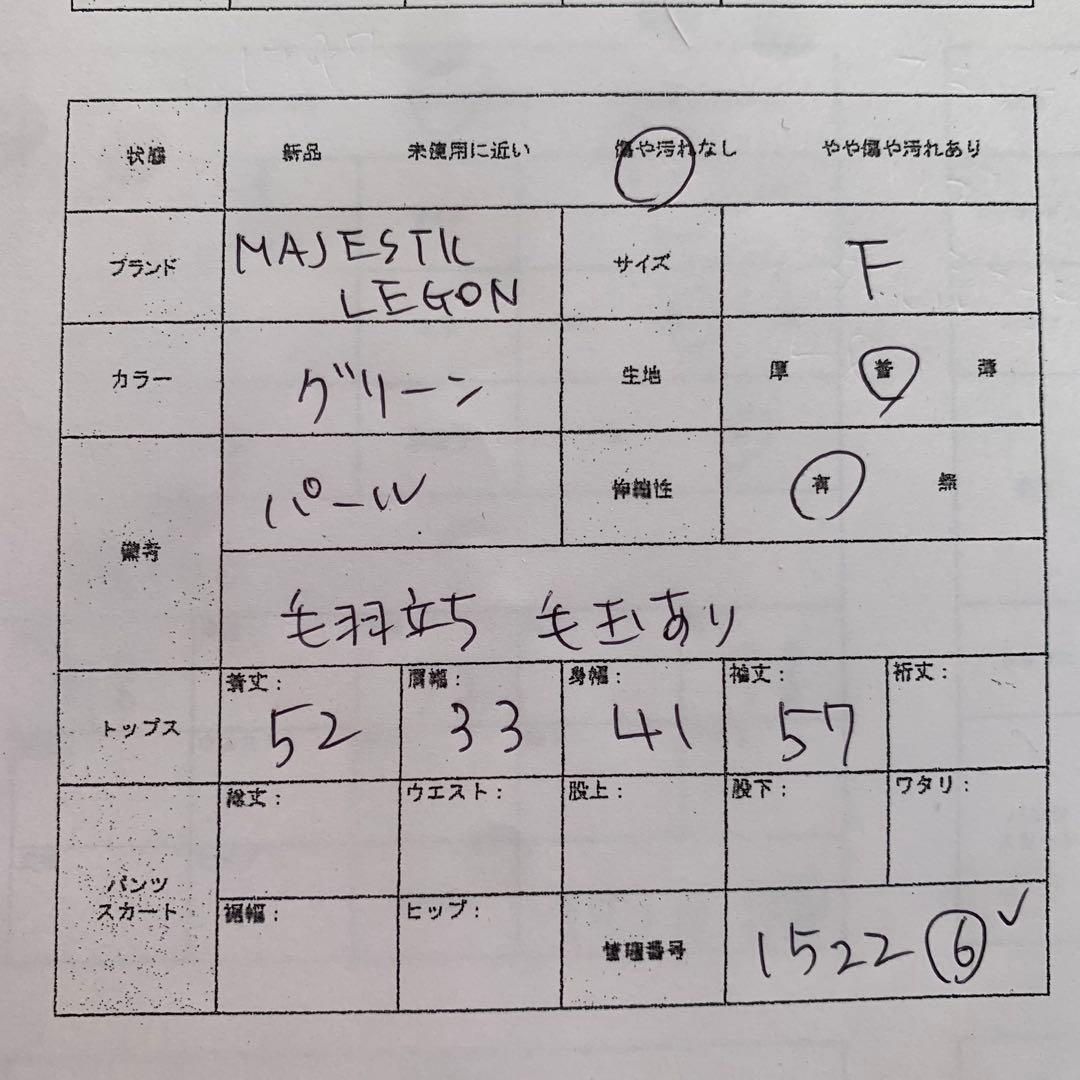 状態 新品 未使用に近い 傷や汚れなし やや傷や汚れあり
ブランド MAJESTIC LEGON サイズ F
カラー グリーン 生地 厚 普 薄
備考 パール 伸縮性 有 無
毛羽立ち 毛玉あり
トップス 着丈: 52 肩幅: 33 身幅: 41 袖丈: 57 裄丈:
パンツ スカート 総丈: ウエスト: 股上: 股下: ワタリ:
裾幅: ヒップ: 管理番号 1522 ⑥ ✓